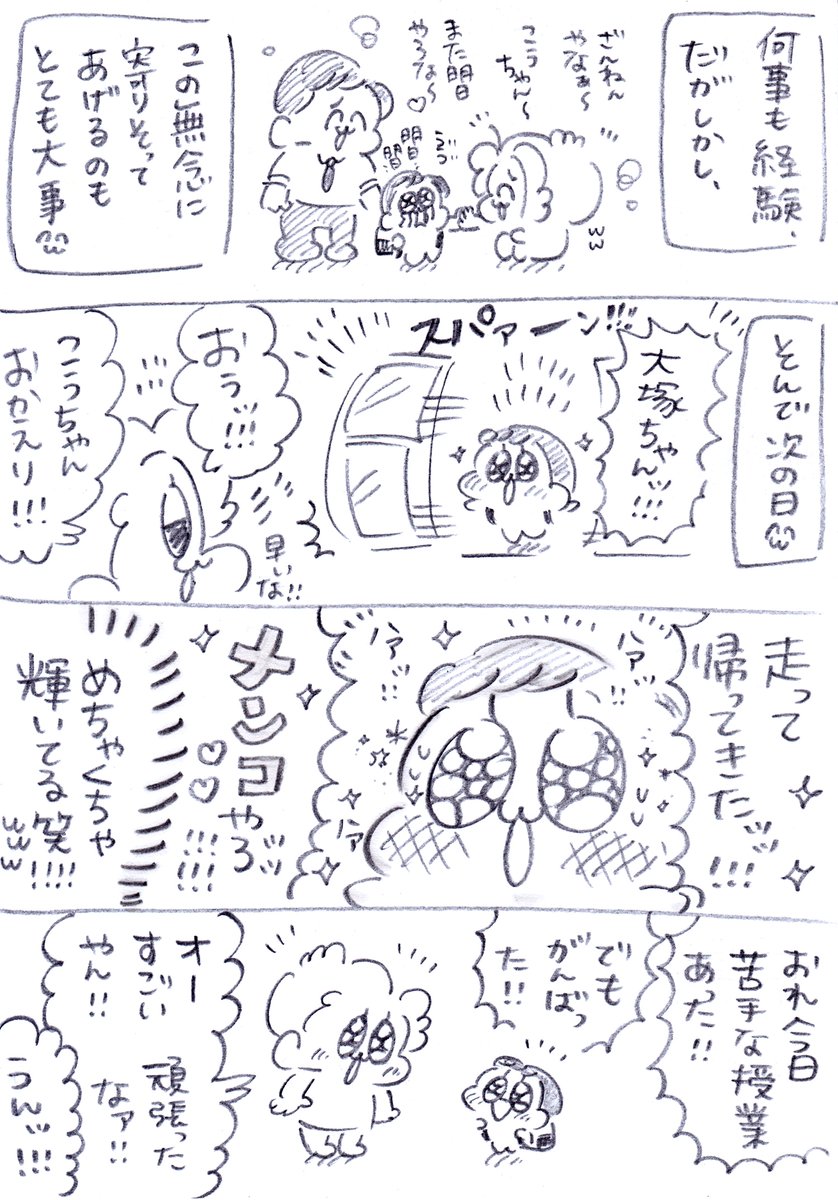 何事も経験、
だがしかし、
ざんねん
やなぁ〜
こうちゃん〜
また明日
やろな〜♡
明日…
この無念に
寄りそって
あげるのも
とても大事
そんで次の日
大塚ちゃんッ!!!
スパァーン!!!
おうッ!!!
早いな!!
こうちゃん
おかえり!!!
走って
帰ってきたッッ!!!
ハァ
ハァッ!!
ハァ
メンコやろッッ
!!!!!!
めちゃくちゃ
輝いてる笑!!!!
www
おれ今日
苦手な授業
あった!!
でも
がんばっ
た!!
オー
すごい
やん!!
頑張った
なァ!!
うんッ!!!